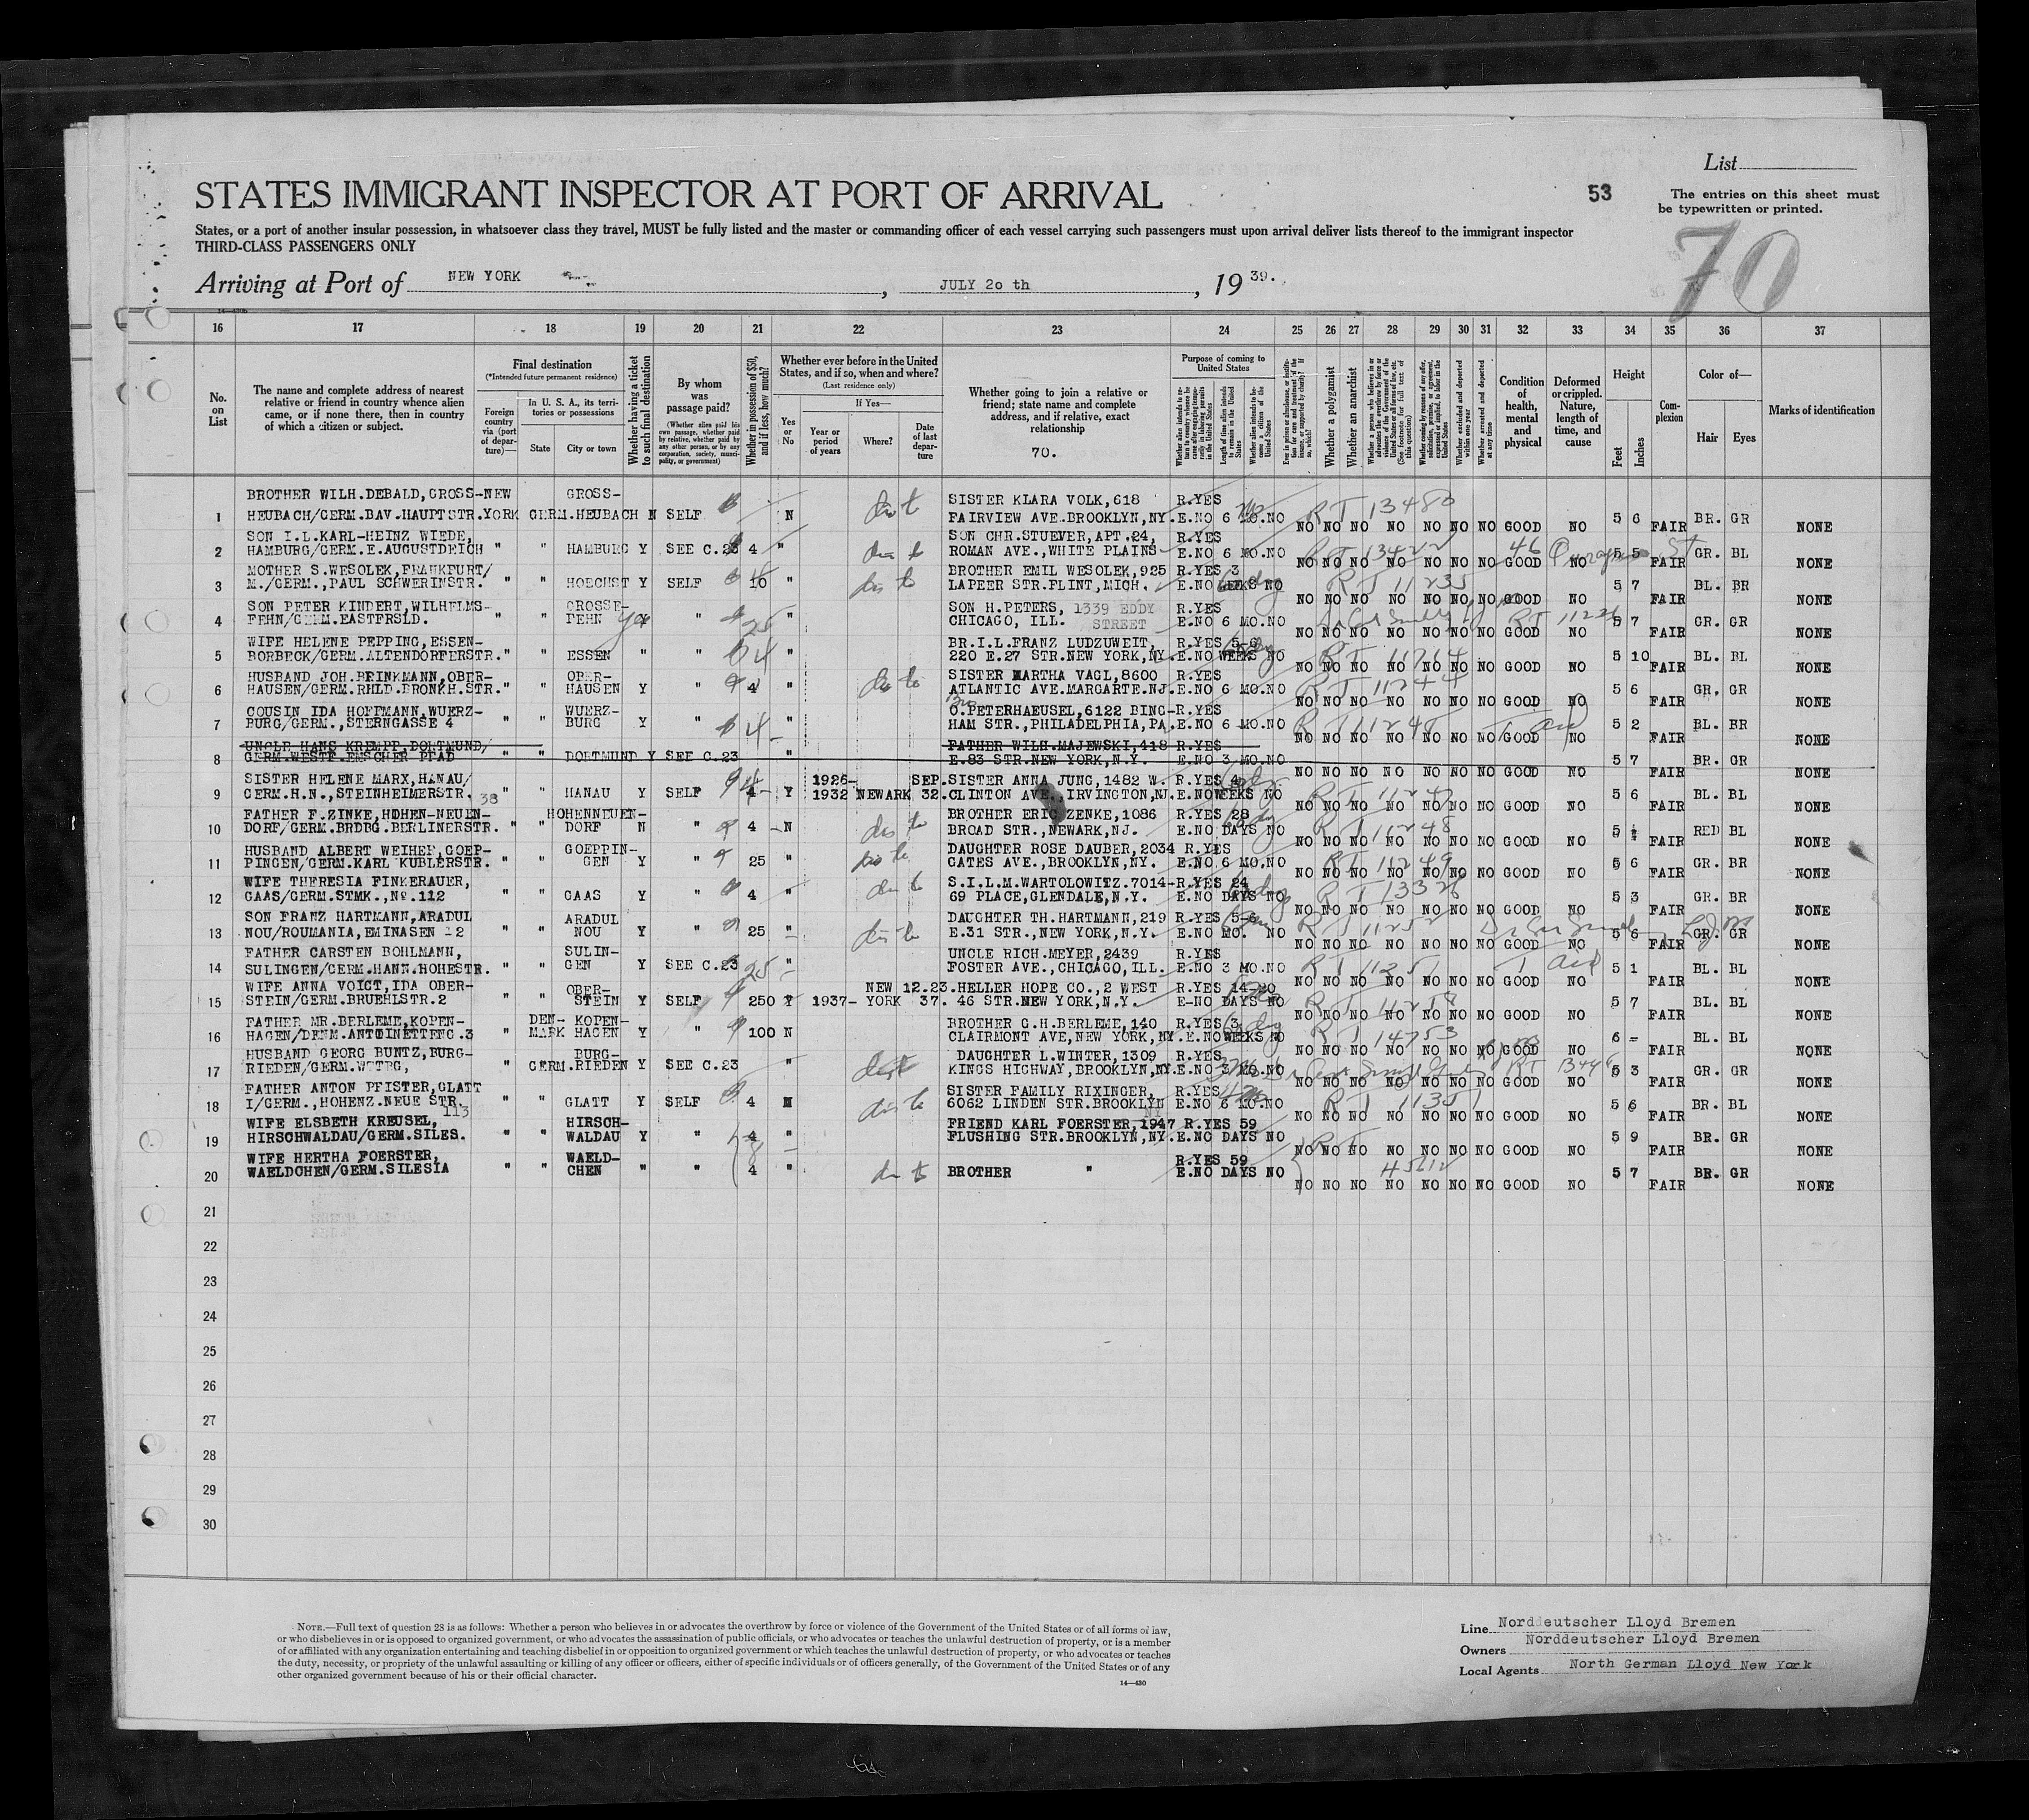 List
STATES IMMIGRANT INSPECTOR AT PORT OF ARRIVAL
53
The entries on this sheet must
be typewritten or printed.
States, or a port of another insular possession, in whatsoever class they travel, MUST be fully listed and the master or commanding officer of each vessel carrying such passengers must upon arrival deliver lists thereof to the immigrant inspector
THIRD-CLASS PASSENGERS ONLY
70
Arriving at Port of NEW YORK , JULY 2o th , 19 39.
16 17 18 19 20 21 22 23 24 25 26 27 28 29 30 31 32 33 34 35 36 37
No. on List
The name and complete address of nearest relative or friend in country whence alien came, or if none there, then in country of which a citizen or subject.
Final destination
(*Intended future permanent residence)
Foreign country via (port of departure)—
In U. S. A., its territories or possessions
State
City or town
Whether having a ticket to such final destination
By whom was passage paid?
(Whether alien paid his own passage, whether paid by relative, whether paid by any other person, or by any corporation, society, municipality, or government)
Whether in possession of $50, and if less, how much?
Whether ever before in the United States, and if so, when and where?
(Last residence only)
Yes or No
If Yes—
Year or period of years
Where?
Date of last departure
Whether going to join a relative or friend; state name and complete address, and if relative, exact relationship
70.
Purpose of coming to United States
Length of time alien intends to remain in the United States
Whether a polygamist
Whether an anarchist
Whether arrested and deported at any time
Condition of health, mental and physical
Deformed or crippled. Nature, length of time, and cause
Height
Feet
Inches
Complexion
Color of—
Hair
Eyes
Marks of identification
BROTHER WILH.DEBALD,GROSS-NEW GROSS- SISTER KLARA VOLK,618 R.YES
1 HEUBACH/GERM.BAV.HAUPTSTR.YORK GERM.HEUBACH N SELF N FAIRVIEW AVE.BROOKLYN,NY.E.NO 6 MO.NO RT 13480 NO NO NO NO NO NO NO GOOD NO 5 6 FAIR BR. GR NONE
SON I.L.KARL-HEINZ WIEDE, SON CHR.STUEVER,APT.24, R.YES
2 HAMBURG/GERM.E.AUGUSTDEICH " " HAMBURG Y SEE C.23 4 " ROMAN AVE.,WHITE PLAINS E.NO 6 MO.NO RT 13422 NO NO NO NO NO NO NO GOOD NO 5 5 FAIR GR. BL NONE
MOTHER S.WESOLEK,FRANKFURT/ BROTHER EMIL WESOLEK,925 R.YES 3
3 M./GERM.,PAUL SCHWERINSTR. " " HOECHST Y SELF 10 " LAPEER STR.FLINT,MICH. E.NO WEEKS NO RT 11235 NO NO NO NO NO NO NO GOOD NO 5 7 FAIR BL. BR NONE
SON PETER KINDERT,WILHELMS- GROSSE- SON H.PETERS, 1339 EDDY R.YES
4 FEHN/GERM.EASTFRSLD. " " FEHN yes " 25 " CHICAGO, ILL. STREET E.NO 6 MO.NO NO NO NO NO NO NO NO GOOD NO 5 7 FAIR GR. GR NONE
WIFE HELENE PEPPING,ESSEN- BR.I.L.FRANZ LUDZUWEIT, R.YES 5-6
5 BORBECK/GERM.ALTENDORFERSTR." " ESSEN " " 4 " 220 E.27 STR.NEW YORK,NY.E.NO WEEKS NO NO NO NO NO NO NO NO GOOD NO 5 10 FAIR BL. BL NONE
HUSBAND JOH.BRINKMANN,OBER- OBER- SISTER MARTHA VAGL,8600 R.YES
6 HAUSEN/GERM.RHLD.BRONKH.STR." " HAUSEN Y " 4 " ATLANTIC AVE.MARGARTE.NJ.E.NO 6 MO.NO RT 11244 NO NO NO NO NO NO NO GOOD NO 5 6 FAIR GR. GR NONE
COUSIN IDA HOFFMANN,WUERZ- WUERZ- O.PETERHAEUSEL,6122 BING-R.YES
7 BURG/GERM.,STERNGASSE 4 " " BURG Y " 4 " HAM STR.,PHILADELPHIA,PA.E.NO 6 MO.NO NO NO NO NO NO NO NO NO 5 2 FAIR BL. BR NONE
UNCLE HANS KREMPP,DORTMUND/ FATHER WILH.MAJEWSKI,418 R.YES
8 GERM.WESTF.EMSCHER PFAD " " DORTMUND Y SEE C.23 " E.83 STR.NEW YORK,N.Y. E.NO 3 MO.NO NO NO NO NO NO NO NO GOOD NO 5 7 FAIR BR. GR NONE
SISTER HELENE MARX,HANAU/ 1926- SEP.SISTER ANNA JUNG,1482 W. R.YES 4
9 GERM.H.N.,STEINHEIMERSTR. 38 " " HANAU Y SELF 4 Y 1932 NEWARK 32.CLINTON AVE.,IRVINGTON,NJ.E.NO WEEKS NO NO NO NO NO NO NO NO GOOD NO 5 6 FAIR BL. BL NONE
FATHER F.ZINKE,HOHEN-NEUEN- HOHENNEUEN- BROTHER ERIC ZENKE,1086 R.YES 28
10 DORF/GERM.BRDBG.BERLINERSTR. " " DORF N " 4 N BROAD STR.,NEWARK,NJ. E.NO DAYS NO RT 11248 NO NO NO NO NO NO NO GOOD NO 5 FAIR RED BL NONE
HUSBAND ALBERT WEIHER,GOEP- GOEPPIN- DAUGHTER ROSE DAUBER,2034 R.YES
11 PINGEN/GERM.KARL KUBLERSTR. " " GEN Y " 25 " GATES AVE.,BROOKLYN,NY. E.NO 6 MO.NO RT 11249 NO NO NO NO NO NO NO GOOD NO 5 6 FAIR GR. BR NONE
WIFE THERESIA FINKERAUER, S.I.L.M.WARTOLOWITZ.7014-R.YES 24
12 GAAS/GERM.STMK.,No.112 " " GAAS Y " 4 " 69 PLACE,GLENDALE,N.Y. E.NO DAYS NO NO NO NO NO NO NO NO GOOD NO 5 3 FAIR GR. BR NONE
SON FRANZ HARTMANN,ARADUL ARADUL DAUGHTER TH.HARTMANN,219 R.YES 5-6
13 NOU/ROUMANIA,EMINASEN 12 " " NOU Y " 25 " E.31 STR.,NEW YORK,N.Y. E.NO MO. NO NO NO NO NO NO NO NO GOOD NO 5 6 FAIR GR. GR NONE
FATHER CARSTEN BOHLMANN, SULIN- UNCLE RICH.MEYER,2439 R.YES
14 SULINGEN/GERM.HANN.HOHESTR. " " GEN Y SEE C.23 25 " FOSTER AVE.,CHICAGO,ILL. E.NO 3 MO.NO RT 11251 NO NO NO NO NO NO NO GOOD NO 5 1 FAIR BL. BL NONE
WIFE ANNA VOIGT,IDA OBER- OBER- NEW 12.23.HELLER HOPE CO.,2 WEST R.YES 14-20
15 STEIN/GERM.BRUEHLSTR.2 " " STEIN Y SELF 250 Y 1937- YORK 37. 46 STR.NEW YORK,N.Y. E-NO DAYS NO NO NO NO NO NO NO NO GOOD NO 5 7 FAIR BL. BL NONE
FATHER MR.BERLEME,KOPEN- DEN- KOPEN- BROTHER G.H.BERLEME,140 R.YES 3
16 HAGEN/DENM.ANTOINETTEFC.3 MARK HAGEN Y " 100 N CLAIRMONT AVE,NEW YORK,NY.E.NO WEEKS NO RT 14753 NO NO NO NO NO NO NO GOOD NO 6 - FAIR BL. BL NONE
HUSBAND GEORG BUNTZ,BURG- BURG- DAUGHTER L.WINTER,1309 R.YES
17 RIEDEN/GERM.WTTBG, " GERM.RIEDEN Y SEE C.23 " KINGS HIGHWAY,BROOKLYN,NY.E.NO 3 MO.NO NO NO NO NO NO NO NO GOOD NO 5 3 FAIR GR. GR NONE
FATHER ANTON PFISTER,GLATT SISTER FAMILY RIXINGER, R.YES
18 I/GERM.,HOHENZ.NEUE STR. 113 " " GLATT Y SELF 4 N 6062 LINDEN STR.BROOKLYN NY E.NO 6 MO.NO RT 11351 NO NO NO NO NO NO NO GOOD NO 5 6 FAIR BR. BL NONE
WIFE ELSBETH KREUSEL, HIRSCH- FRIEND KARL FOERSTER,1947 R.YES 59
19 HIRSCHWALDAU/GERM.SILES. " " WALDAU Y " 4 " FLUSHING STR.BROOKLYN,NY.E.NO DAYS NO RT NO NO NO NO NO NO NO GOOD NO 5 9 FAIR BR. GR NONE
WIFE HERTHA FOERSTER, WAELD- R.YES 59
20 WAELDCHEN/GERM.SILESIA " " CHEN " " 4 " BROTHER " E.NO DAYS NO NO NO NO NO NO NO NO GOOD NO 5 7 FAIR BR. GR NONE
21
22
23
24
25
26
27
28
29
30
NOTE.—Full text of question 28 is as follows: Whether a person who believes in or advocates the overthrow by force or violence of the Government of the United States or of all forms of law,
or who disbelieves in or is opposed to organized government, or who advocates the assassination of public officials, or who advocates or teaches the unlawful destruction of property, or is a member
of or affiliated with any organization entertaining and teaching disbelief in or opposition to organized government or which teaches the unlawful destruction of property, or who advocates or teaches
the duty, necessity, or propriety of the unlawful assaulting or killing of any officer or officers, either of specific individuals or of officers generally, of the Government of the United States or of any
other organized government because of his or their official character.
14—430
Line Norddeutscher Lloyd Bremen
Owners Norddeutscher Lloyd Bremen
Local Agents North German Lloyd New York